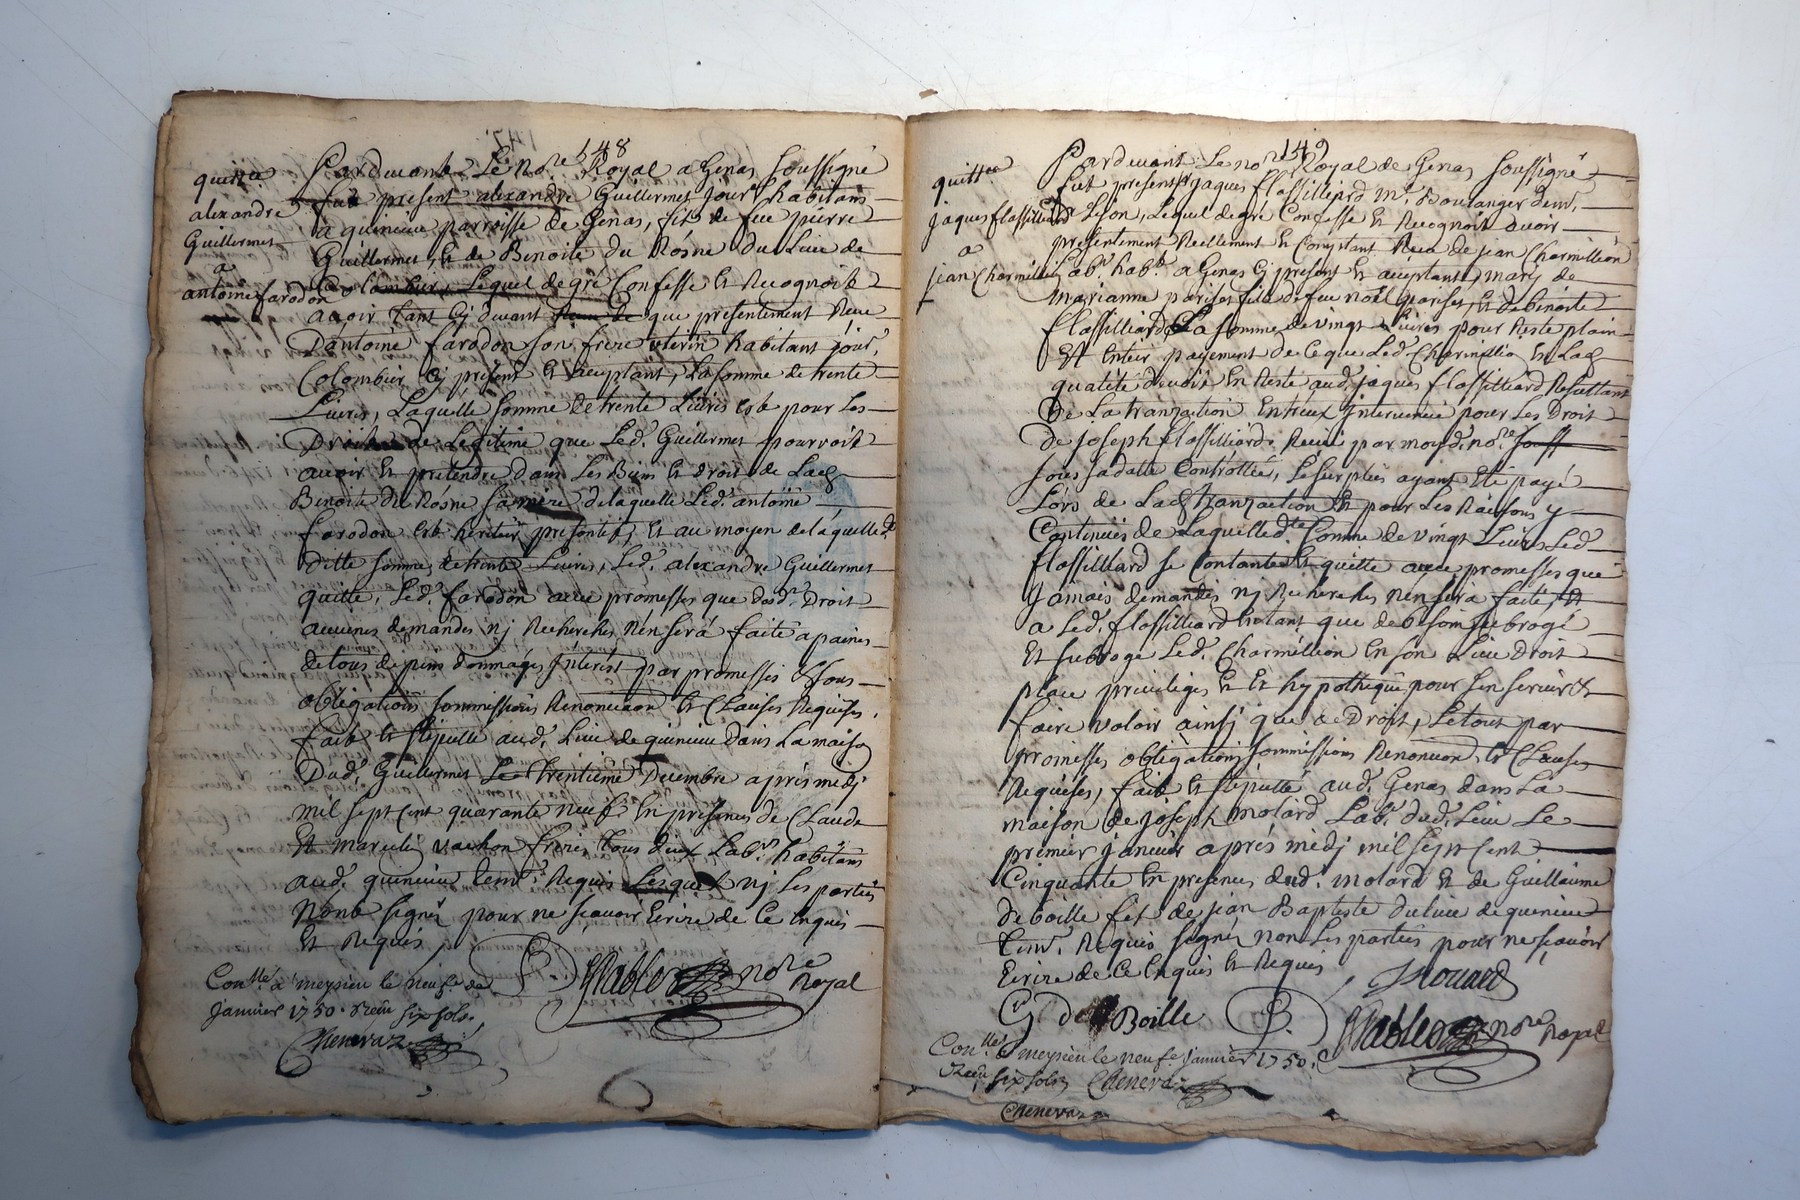 148
quittce
alexandre
Guillermet
a
antoine farodon
Pardevant Le Nore Royal a Genas soussigné
fut present alexandre Guillermet Jourr habitans
a quineuve parroisse de Genas, fils de feu pierre
Guillermet, et de Benoite du Rosne du Lieu de
Colombier, Lequel de gré Confesse et Recognoit
avoir tant Cj devant que presentement Reçu
D'antoine farodon son frere uterin habitant jour.
Colombier Cj present et acceptant, La somme de trente
Livres, Laquelle somme de trente Livres est pour Les
Droits de Legitime que Led. Guillermet pourroit
avoir et pretendre dans Les Biens et droit de Lad.
Benoite du Rosne sa mere de laquelle Led. antoine
farodon est heritier presontif, et au moyen de laquelle
ditte somme de trente Livres, Led. alexandre Guillermet
quitte, Led. farodon avec promesses que dosd. Droit
aucunes demandes nj Recherches n'en sera faite a paines
de tous depens dommages Interest par promesses
obligations sommissions Renonciaon et Clauses Requises,
fait et stipullé aud. Lieu de quineuve dans La maison
Dud. Guillermet Le trentieme Decembre apres midj
mil sept cent quarante neuf En presences de Claude
Et vachon freres tous deux Labrs habitans
aud. quineuve temr. Requis Lesquels nj Les parties
N'ont signés pour ne sçavoir Ecrire de Ce Enquis
Et Requis,
nore Royal
Conlle a meysieu le neufe de
janvier 1750. Reçu six sols,
Chenevaz
149
quittce
jaques flassilliard
a
jean Charmillion
Pardevant Le nore Royal de Genas soussigné
fut present Sr jaques flassilliard Mr. Boulanger dem.
Lion, Lequel de gré Confesse et Recognoit avoir
presentement Reellement et Comptant Reçu de jean Charmillion
Labr. habt. a Genas Cj present et acceptant, mary de
marianne pariset fille de feu noël pariset, et de benoite
flassilliard La somme de vingt Livres pour Reste plain
Et Entier payement de Ce que Led. Charmillion En Lad.
qualité devoit En Reste aud. jaques flassilliard Resultant
De La tranzaction Entreux Intervenue pour Les Droit
de joseph flassilliard, Recüe par moyd. nore
sous sa datte Controllée, Le surplus ayant Eté payé
Lors de Lad. tranzaction Et pour Les Raisons y
Contenues de Laquelle dte somme de vingt Livres Led.
flassilliard se Contante Et quitte avec promesses que
jamais demandes nj Recherches n'en sera faite,
a Led. flassilliard En tant que de besoin subrogé
Et subroge Led. Charmillion En son Lieu Droit
place privileges Et hypotheque pour s'en servir et
faire valoir ainsj que de Droit, Le tout par
promesses obligations sommissions Renonciaon, et Clauses
Requises, fait et stipullé aud. Genas dans La
maison de joseph molard Labr. dud. Lieu Le
premier janvier après midj mil sept cent
Cinquante En presences dud. molard et de Guillaume
de boille fils de jean Baptiste du lieu de quineuve
temr. Requis signés non Les parties pour ne sçavoir
Ecrire de Ce Enquis et Requis
G. de Boille
nore royal
Conlle a meysieu le neufe janvier 1750.
Reçu six sols Chenevaz
Chenevaz